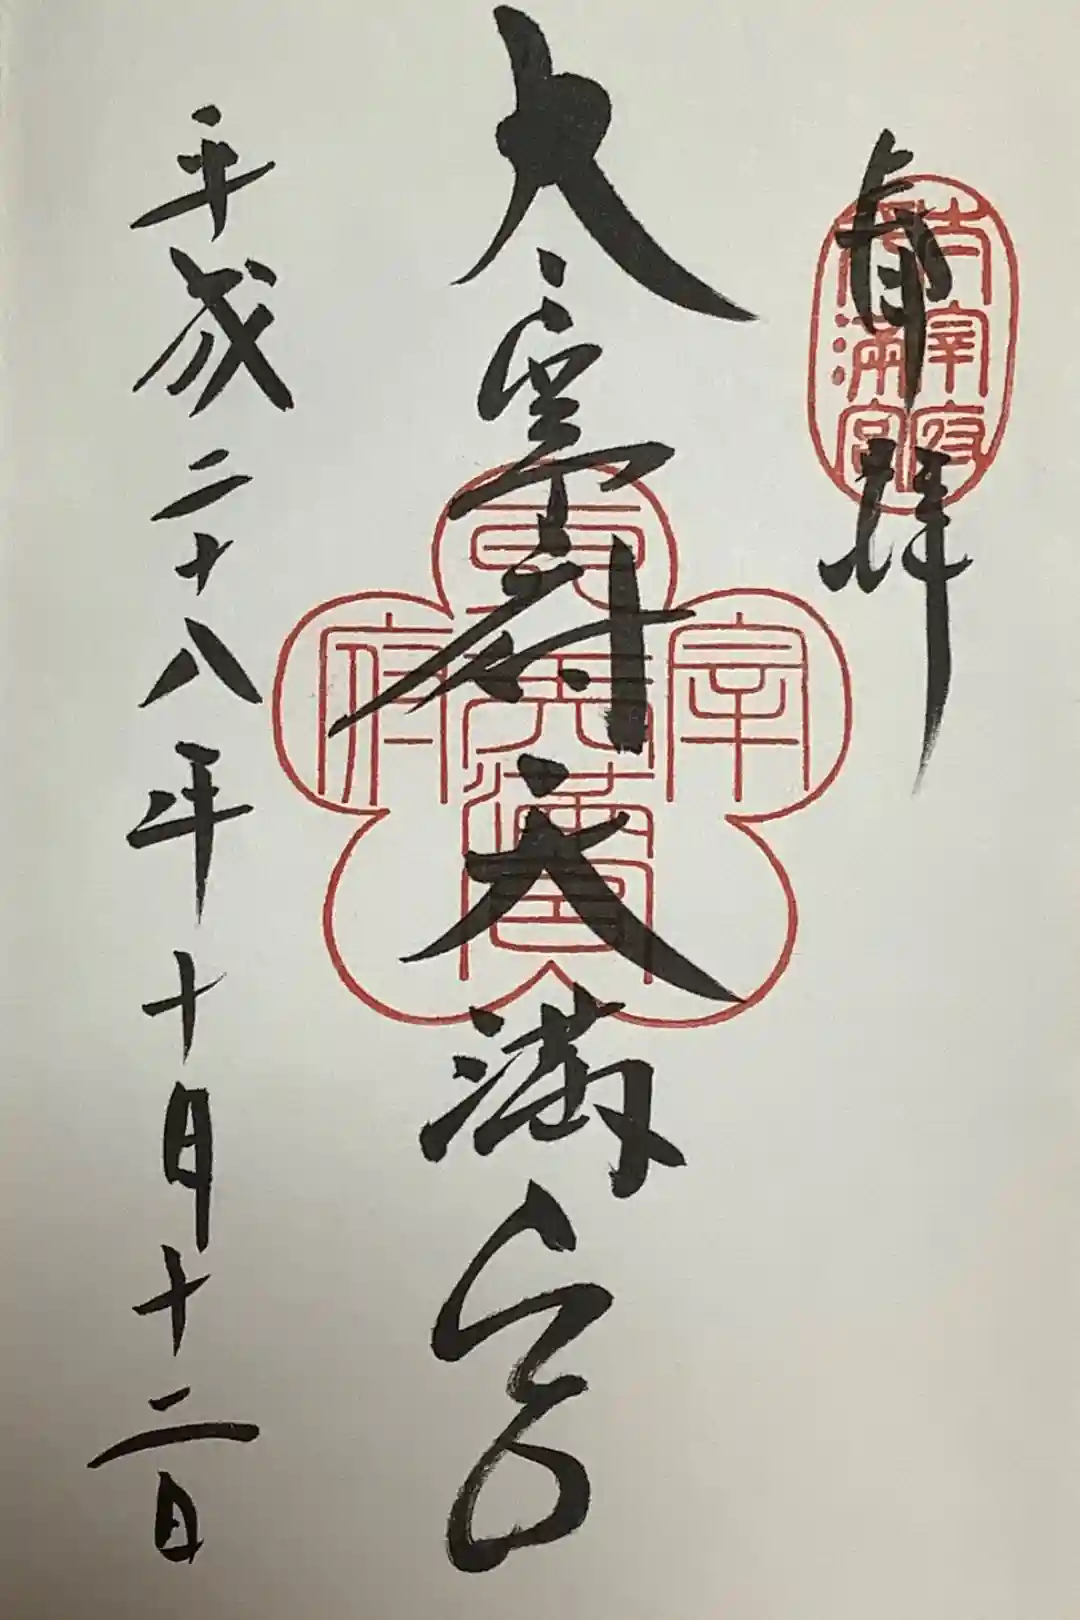 奉拝
太宰府
天満宮
大宰府天満宮
宰
府
天満宮
平成二十八年十月十二日